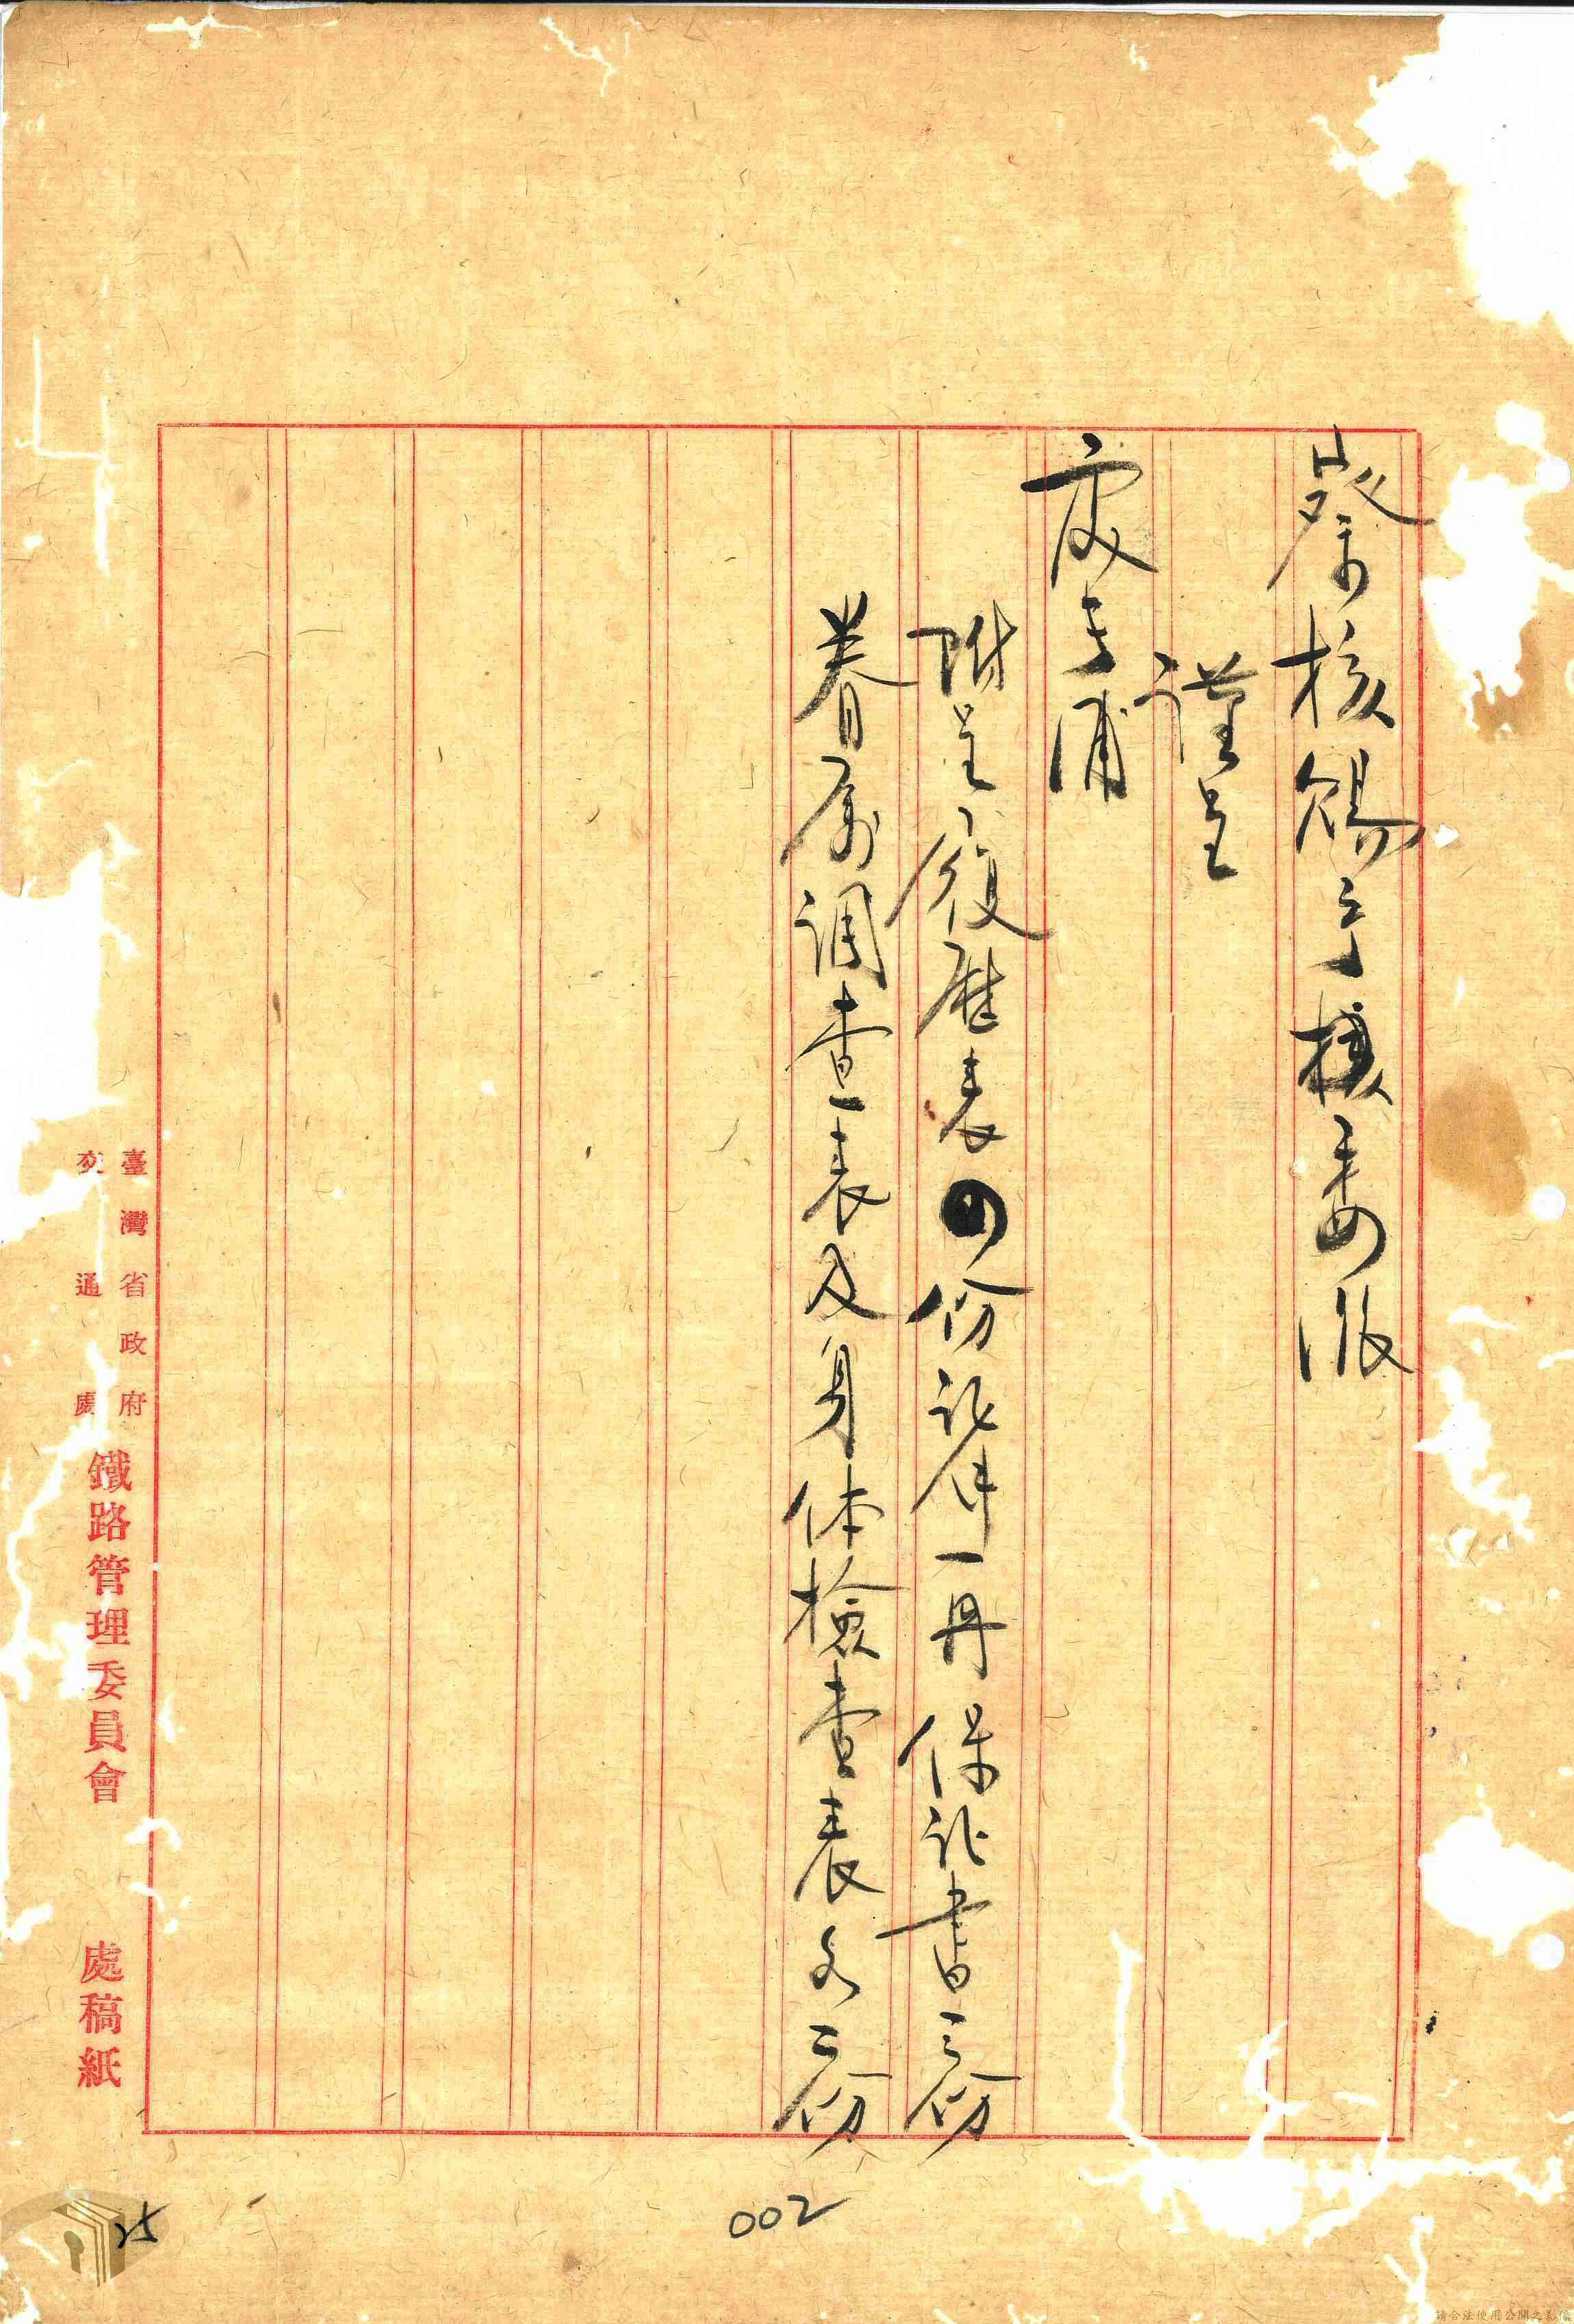 察核賜予核委派
謹呈
處長浦
附呈履歷表四份證件一冊保証書三份
眷属調查表及身体檢查表各二份
臺灣省政府
交通處
鐵路管理委員會 處稿紙
002
25
請合法使用公開之影像